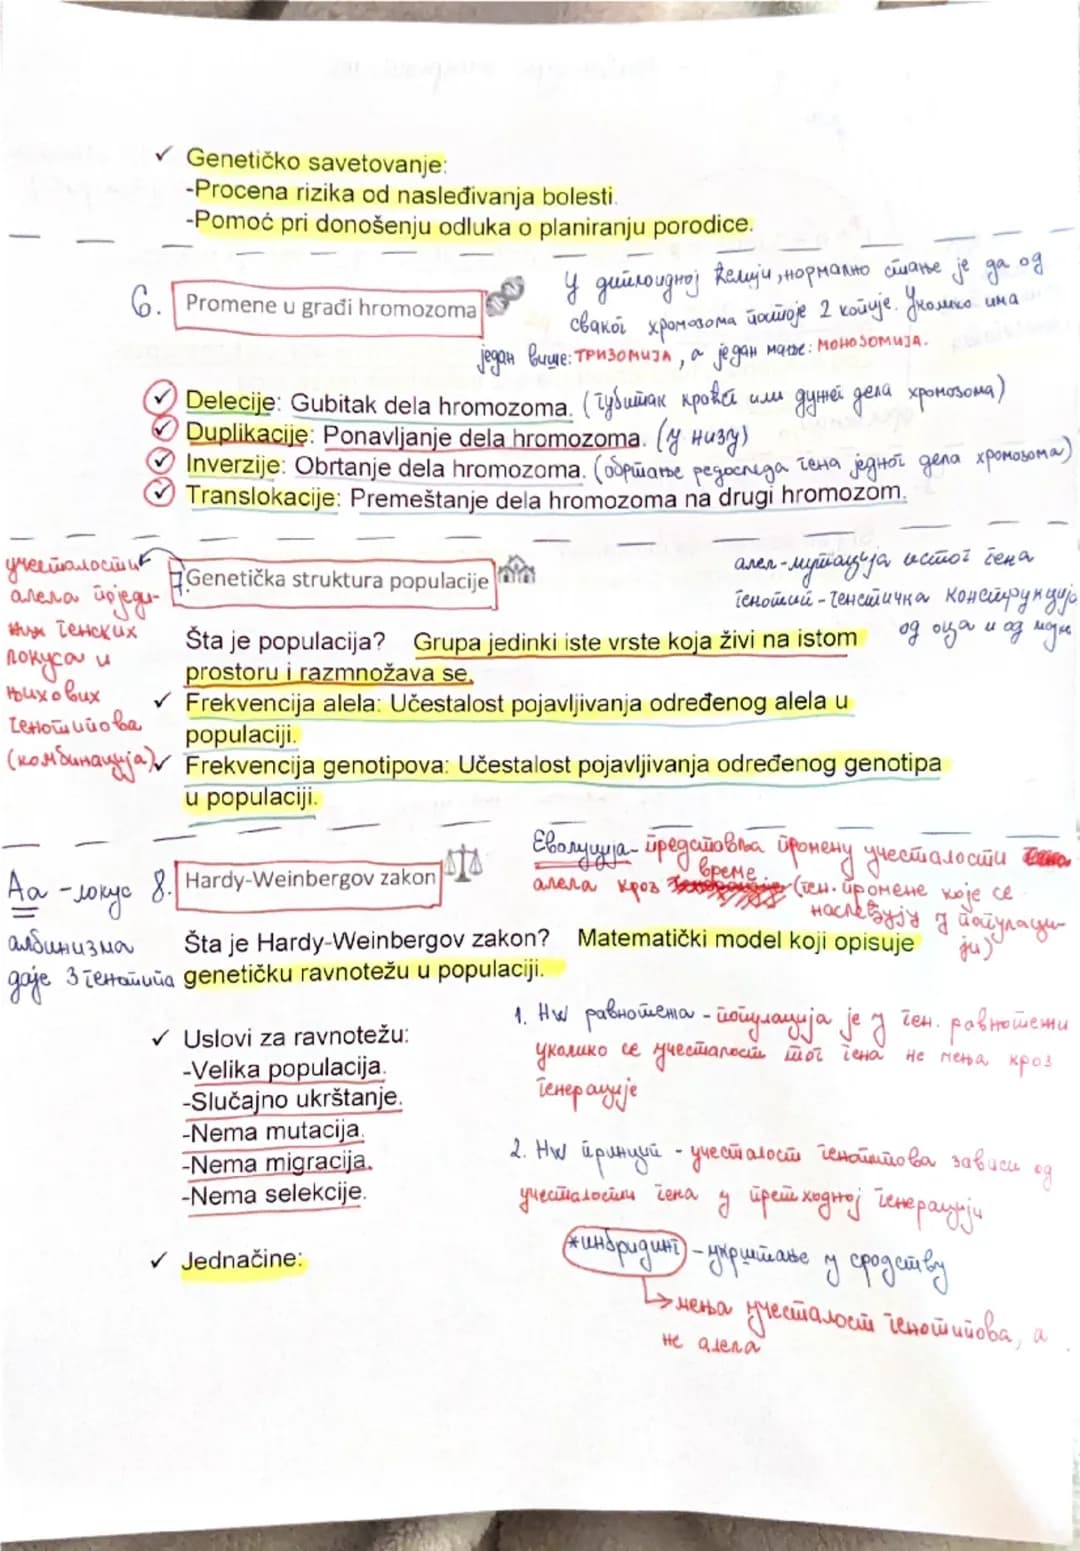 ✓ Genetičko savetovanje:
-Procena rizika od nasleđivanja bolesti.
-Pomoć pri donošenju odluka o planiranju porodice.
6. Promene u građi hromozoma
У диплоидној ћелији, нормално стање је да од
сваког хромозома постоје 2 копије. Уколико има
један више: ТРИЗОМИЈА, а један мање: МОНОЗОМИЈА.
✓ Delecije: Gubitak dela hromozoma. (губитак краћег или дужег дела хромозома)
✓ Duplikacije: Ponavljanje dela hromozoma. (у низу)
✓ Inverzije: Obrtanje dela hromozoma. (обртање редоследа гена једног дела хромозома)
✓ Translokacije: Premeštanje dela hromozoma na drugi hromozom.
7. Genetička struktura populacije
учесталости
алела поједи-
них генских
локуса и
њихових
генотипова
(комбинација)
алел-мутација истог гена
генотип-генетичка конструкција
од оца и од мајке
Šta je populacija? Grupa jedinki iste vrste koja živi na istom
prostoru i razmnožava se.
✓ Frekvencija alela: Učestalost pojavljivanja određenog alela u
populaciji.
✓ Frekvencija genotipova: Učestalost pojavljivanja određenog genotipa
u populaciji.
Еволуција- представља промену учесталости
алела кроз време (ген. промене које се
наслеђују у популаци-
ји)
8. Hardy-Weinbergov zakon
Аа -локус
албинизма
даје 3 генотипа
Šta je Hardy-Weinbergov zakon? Matematički model koji opisuje
genetičku ravnotežu u populaciji.
✓ Uslovi za ravnotežu:
-Velika populacija.
-Slučajno ukrštanje.
-Nema mutacija.
-Nema migracija.
-Nema selekcije.
✓ Jednačine:
1. HW равнотежа - популација је у ген. равнотежи
уколико се учесталост тог гена не мења кроз
генерације
2. HW принцип - учесталост генотипова зависи од
учесталости гена у претходној генерацији
*инбридинг - укрштање у сродству
→ мења учесталост генотипова, а
не алела